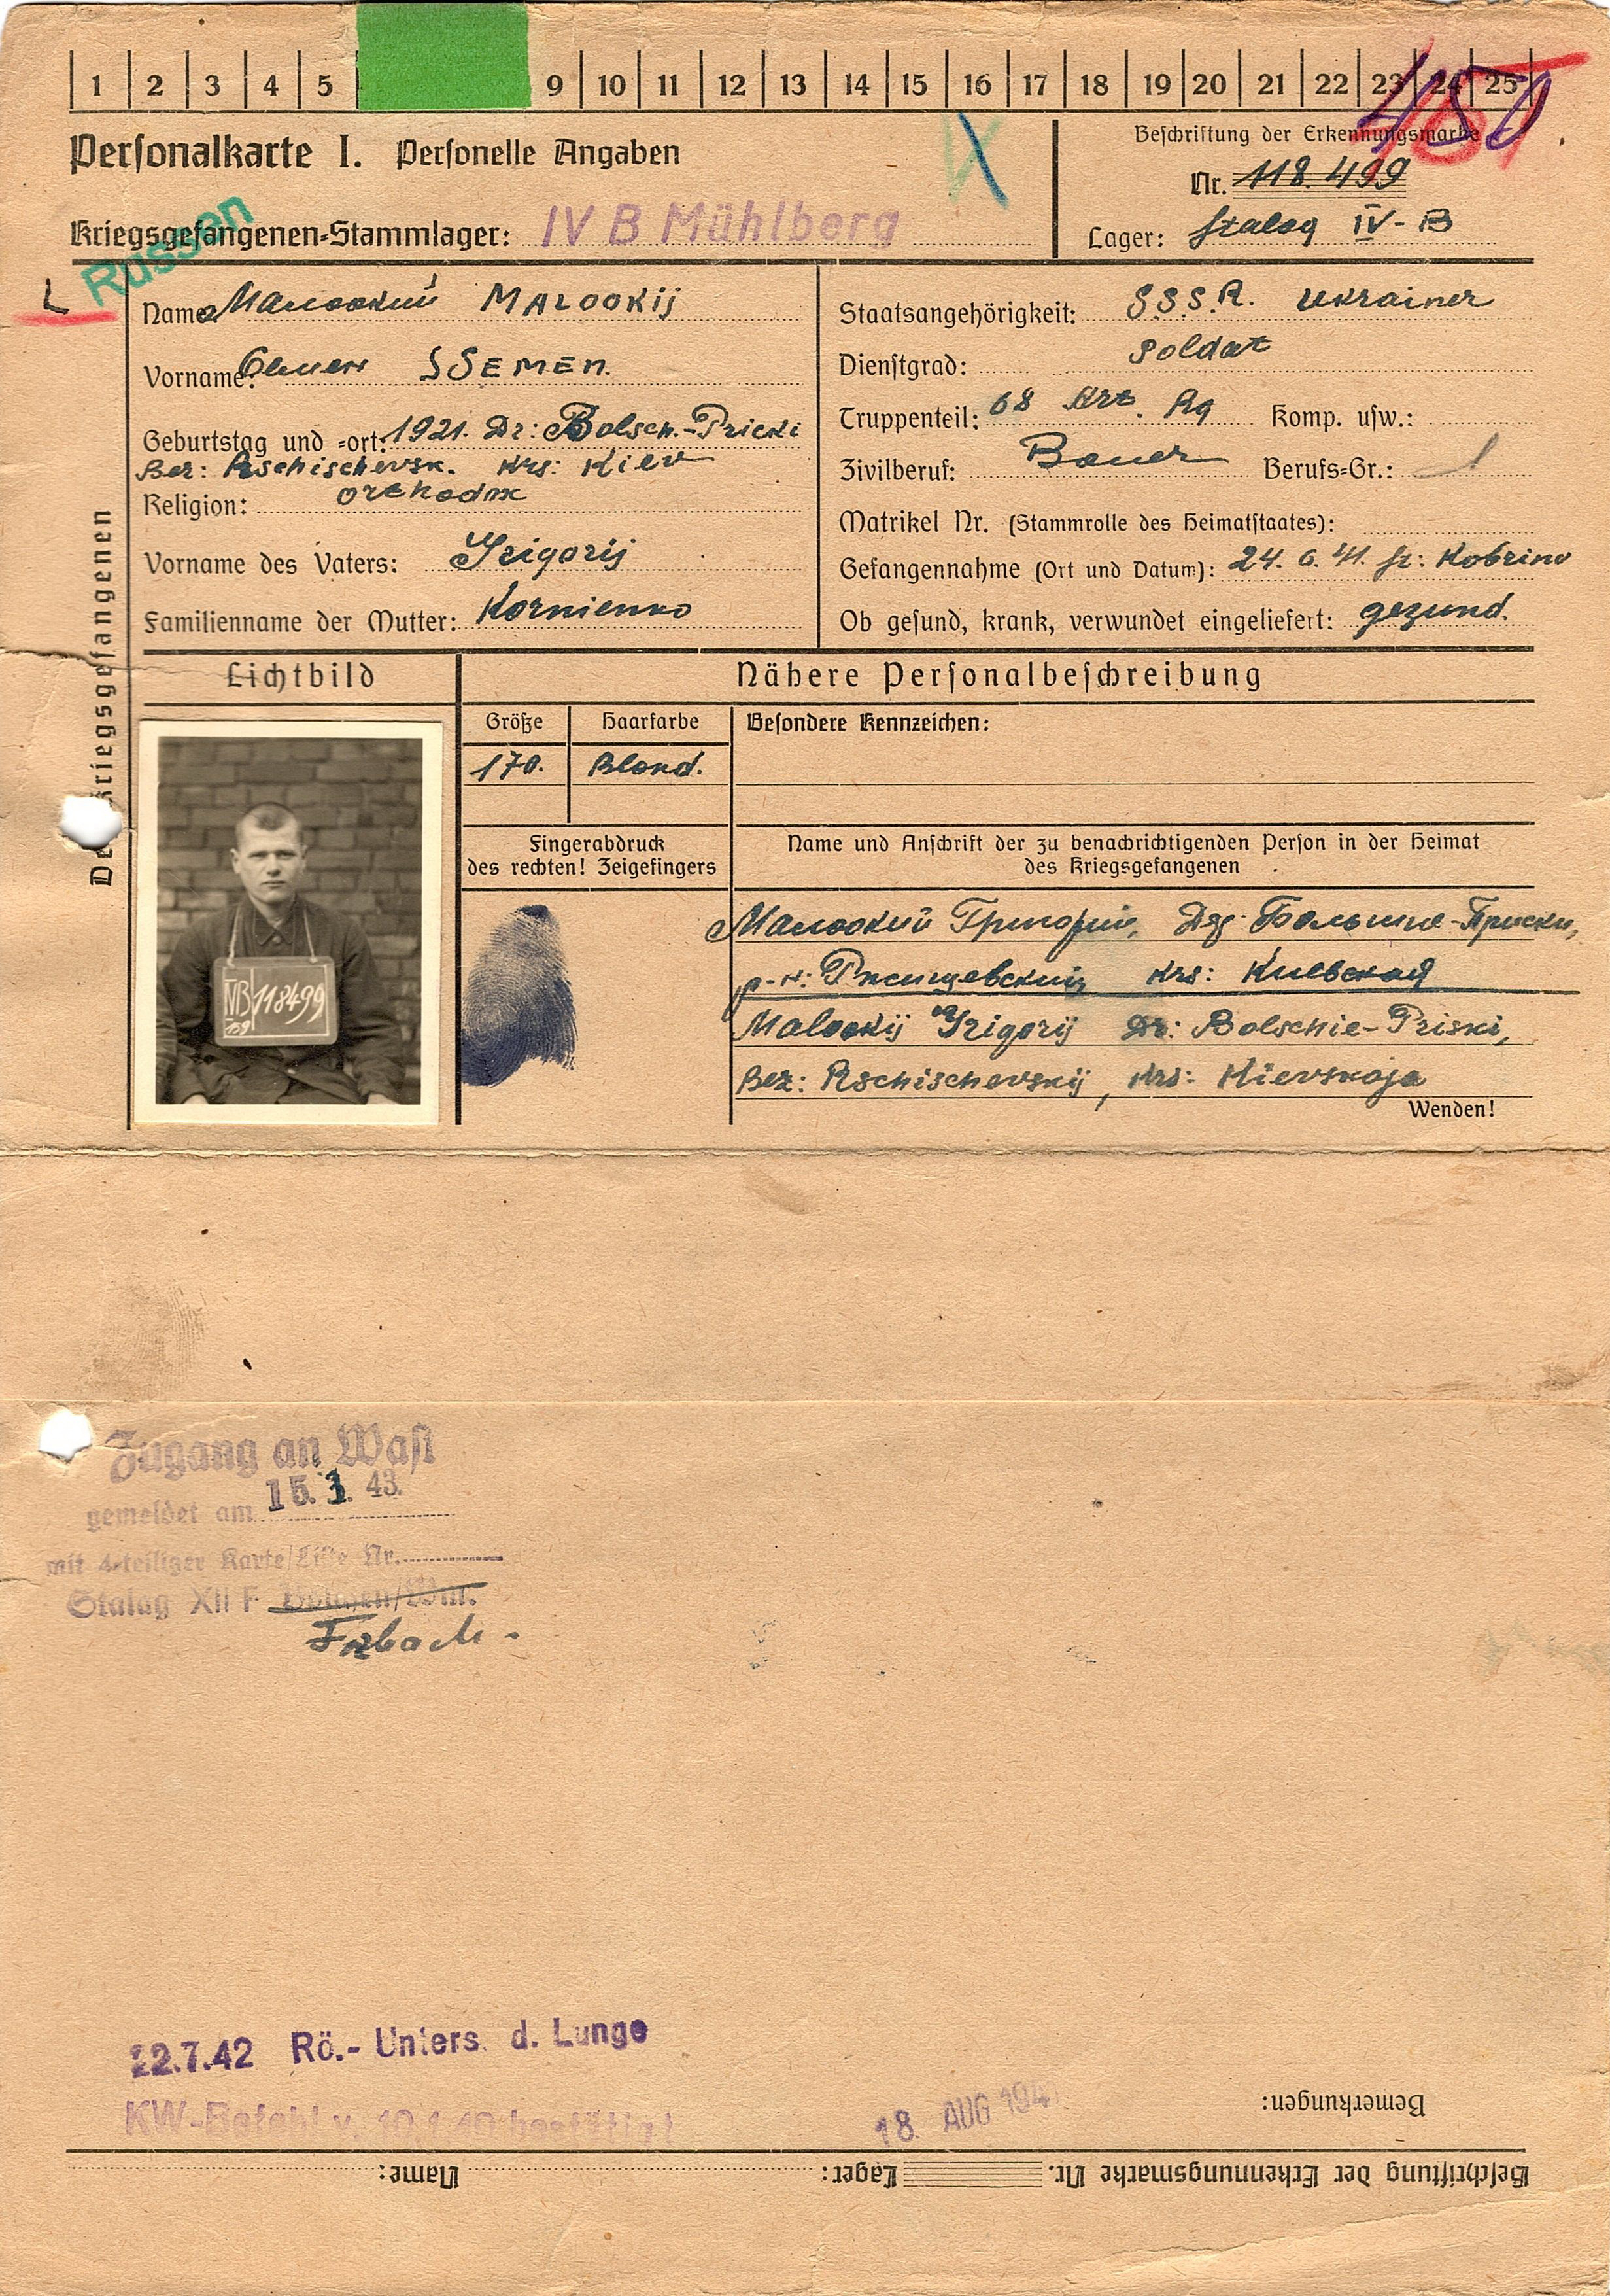 1 2 3 4 5 9 10 11 12 13 14 15 16 17 18 19 20 21 22 23 24 25
Personalkarte I. Personelle Angaben
Beschriftung der Erkennungsmarke
Nr. 118.499
Kriegsgefangenen-Stammlager: IV B Mühlberg
Lager: Stalag IV-B
Russen
L
Des Kriegsgefangenen
Name: Малоокий MALOOKIJ
Vorname: Семен SSEMEN.
Geburtstag und -ort: 1921. Dr: Bolsch.-Pricki
Bez: Rschischevsk. Krs: Kiev
Religion: orthodox
Vorname des Vaters: Grigorij
Familienname der Mutter: Kornienko
Staatsangehörigkeit: S.S.S.R. Ukrainer
Dienstgrad: Soldat
Truppenteil: 68 Art. Rg Komp. usw.:
Zivilberuf: Bauer Berufs-Gr.: 1
Matrikel Nr. (Stammrolle des Heimatstaates):
Gefangennahme (Ort und Datum): 24.6.41. St: Kobrino
Ob gesund, krank, verwundet eingeliefert: gezund.
Lichtbild
Nähere Personalbeschreibung
Größe Haarfarbe Besondere Kennzeichen:
170. Blond.
Fingerabdruck
des rechten! Zeigefingers
Name und Anschrift der zu benachrichtigenden Person in der Heimat
des Kriegsgefangenen
IVB 118499
159
Малоокий Григорий, Дер. Большие-Приски,
р-н: Ржищевский, Krs: Киевская
Malookij Grigorij Dr: Bolschie-Priski,
Bez: Rschischevskij, Krs: Kievskaja
Wenden!
Zugang an Wast
gemeldet am 15. 1. 43.
mit 4-teiliger Karte/Liste Nr.
Stalag XII F
22.7.42 Rö.-Unters. d. Lunge
KW-Befehl v. 10.1.40 bestätigt
18. AUG 194
Bemerkungen:
Beschriftung der Erkennungsmarke Nr. Lager: Name: